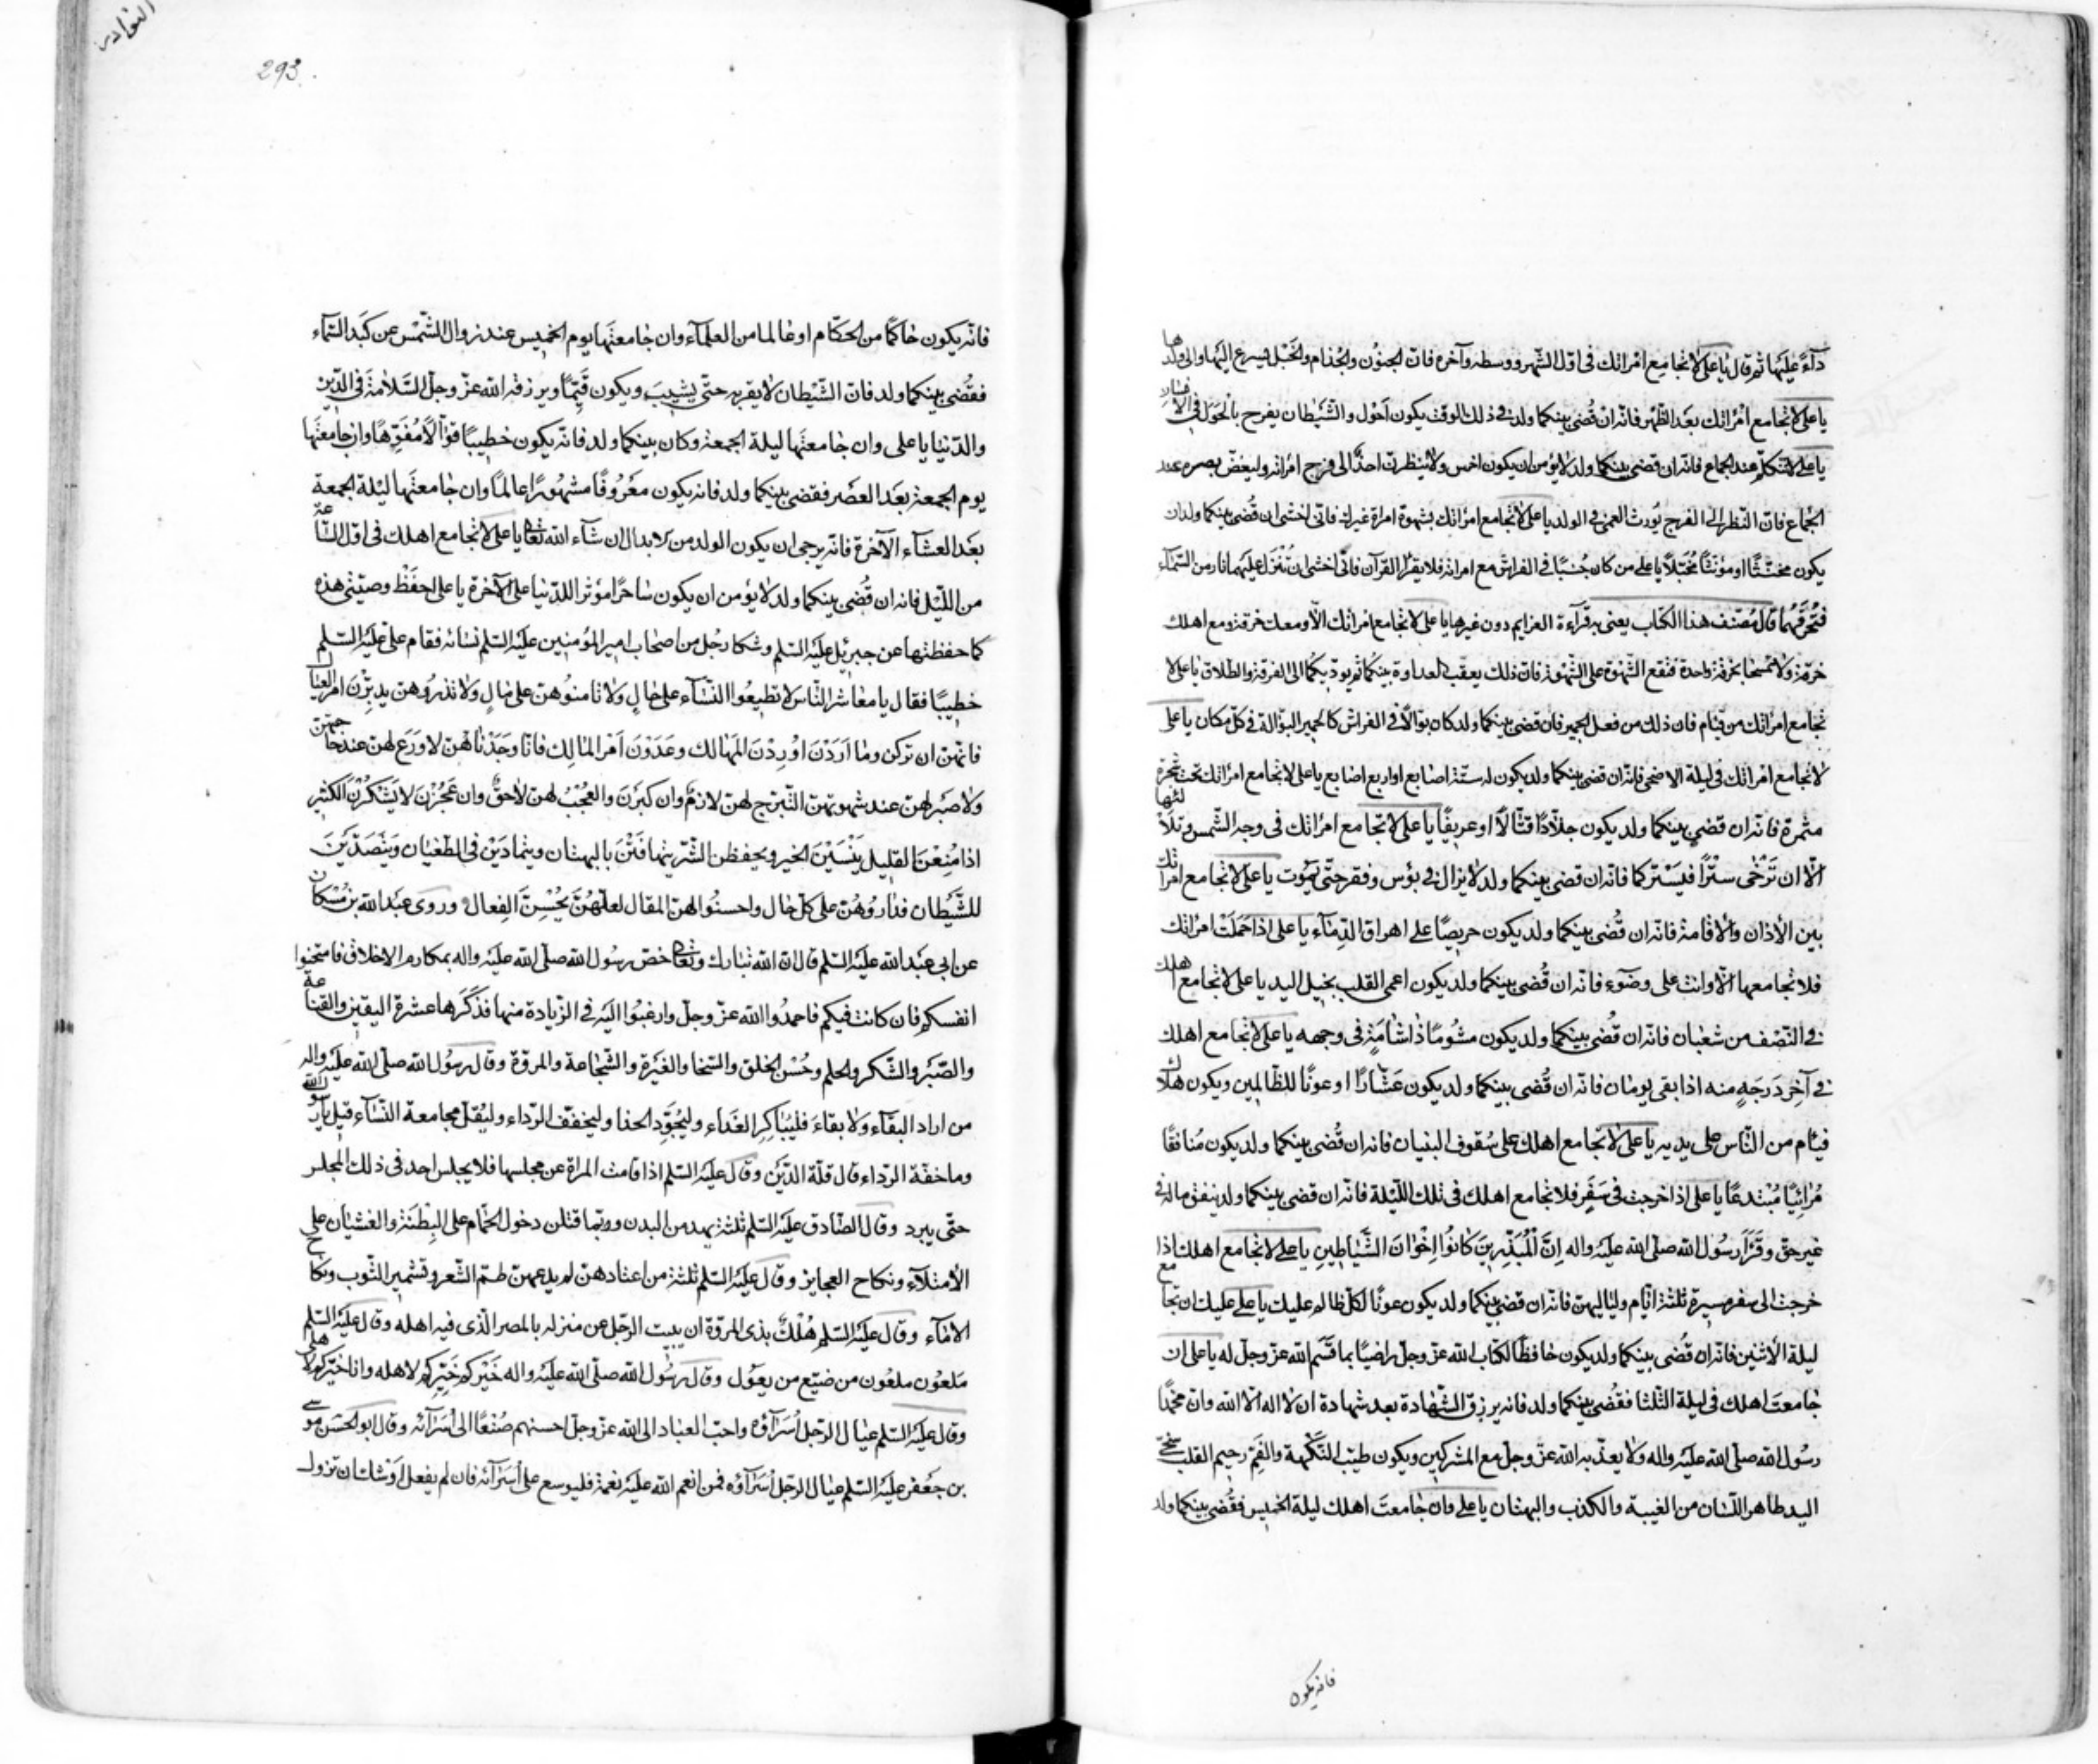 دآءً عليها ثم قال يا على لا تجامع امراتك فى اول الشهر ووسطه وآخره فان الجنون والجذام والخبل يسرع اليها والى ولدها
يا على لا تجامع امراتك بعد الظهر فانه ان قضى بينكما ولد فى ذلك الوقت يكون احول والشيطان يفرح بالحول فى الانسان
يا على لا تتكلم عند الجماع فانه ان قضى بينكما ولد لا يؤمن ان يكون اخرس ولا ينظرن احد الى فرج امراته وليغض بصره عند
الجماع فان النظر الى الفرج يورث العمى فى الولد يا على لا تجامع امراتك بشهوة امراة غيرك فانى اخشى ان قضى بينكما ولد ان
يكون مخنثا او مؤنثا مخبلا يا على من كان جنبا فى الفراش مع امراته فلا يقرا القرآن فانى اخشى ان تنزل عليهما نار من السمآء
فتحرقهما قال مصنف هذا الكتاب يعنى به قرآءة العزايم دون غيرها يا على لا تجامع امراتك الا ومعك خرقة ومع اهلك
خرقة ولا تمسحا بخرقة واحدة فتقع الشهوة على الشهوة فان ذلك يعقب العداوة بينكما ثم يودّيكما الى الفرقة والطلاق يا على لا
تجامع امراتك من قيام فان ذلك من فعل الحمير فان قضى بينكما ولد كان بوالا فى الفراش كالحمير البوالة فى كل مكان يا على
لا تجامع امراتك فى ليلة الاضحى فانه ان قضى بينكما ولد يكون له ستة اصابع او اربع اصابع يا على لا تجامع امراتك تحت شجرة
مثمرة فانه ان قضى بينكما ولد يكون جلادا قتالا او عريفا يا على لا تجامع امراتك فى وجه الشمس وتلألئها
الا ان ترخى سترا فيستركما فانه ان قضى بينكما ولد لا يزال فى بؤس وفقر حتى يموت يا على لا تجامع امراتك
بين الأذان والاقامة فانه ان قضى بينكما ولد يكون حريصا على اهراق الدمآء يا على اذا حملت امراتك
فلا تجامعها الا وانت على وضوء فانه ان قضى بينكما ولد يكون اعمى القلب بخيل اليد يا على لا تجامع اهلك
فى النصف من شعبان فانه ان قضى بينكما ولد يكون مشوما ذا شامة فى وجهه يا على لا تجامع اهلك
فى آخر درجة منه اذا بقى يومان فانه ان قضى بينكما ولد يكون عشارا او عونا للظالمين ويكون هلاك
فيام من الناس على يديه يا على لا تجامع اهلك على سقوف البنيان فانه ان قضى بينكما ولد يكون منافقا
مرائيا مبتدعا يا على اذا خرجت فى سفر فلا تجامع اهلك فى تلك الليلة فانه ان قضى بينكما ولد ينفق ماله فى
غير حق وقرأ رسول الله صلى الله عليه واله إنَّ الْمُبَذِّرِينَ كَانُوا إِخْوَانَ الشَّيَاطِينِ يا على لا تجامع اهلك اذا
خرجت الى سفر مسيرة ثلثة ايام ولياليهن فانه ان قضى بينكما ولد يكون عونا لكل ظالم عليك يا على عليك ان تجامع
ليلة الأثنين فانه ان قضى بينكما ولد يكون حافظا لكتاب الله عز وجل راضيا بما قسم الله عز وجل له يا على ان
جامعت اهلك فى ليلة الثلثا فقضى بينكما ولد فانه يرزق الشهادة بعد شهادة ان لا اله الا الله وان محمدا
رسول الله صلى الله عليه واله ولا يعذبه الله عز وجل مع المشركين ويكون طيب النكهة والفم رحيم القلب سخى
اليد طاهر اللسان من الغيبة والكذب والبهتان يا على وان جامعت اهلك ليلة الخميس فقضى بينكما ولد
فانه يكون
النوادر
293.
فانه يكون حاكما من الحكام او عالما من العلمآء وان جامعتها يوم الخميس عند زوال الشمس عن كبد السمآء
فقضى بينكما ولد فان الشيطان لا يقربه حتى يشيب ويكون قيما ويرزقه الله عز وجل السلامة فى الدين
والدنيا يا على وان جامعتها ليلة الجمعة وكان بينكما ولد فانه يكون خطيبا قوالا مفوها وان جامعتها
يوم الجمعة بعد العصر فقضى بينكما ولد فانه يكون معروفا مشهورا عالما وان جامعتها ليلة الجمعة
بعد العشآء الآخرة فانه يرجى ان يكون الولد من الابدال ان شآء الله تعالى يا على لا تجامع اهلك فى اول الساعة
من الليل فانه ان قضى بينكما ولد لا يؤمن ان يكون ساحرا مؤثرا للدنيا على الآخرة يا على احفظ وصيتى هذه
كما حفظتها عن جبرئيل عليه السلم وشكا رجل من اصحاب امير المؤمنين عليه السلم نسائه فقام على عليه السلم
خطيبا فقال يا معاشر الناس لا تطيعوا النسآء على حال ولا تامنوهن على مال ولا تذروهن يدبرن امر العيال
فانهن ان تركن وما اردن اوردن المهالك وعدون امر المالك فانا وجدناهن لا ورع لهن عند حاجتهن
ولا صبر لهن عند شهوتهن التبرج لهن لازم وان كبرن والعجب لهن لاحق وان عجزن لا يشكرن الكثير
اذا منعن القليل ينسين الخير ويحفظن الشر يتهافتن بالبهتان ويتمادين فى الطغيان ويتصدين
للشيطان فداروهن على كل حال واحسنوا لهن المقال لعلهن يحسن الفعال وروى عبد الله بن مسكان
عن ابى عبد الله عليه السلم قال ان الله تبارك وتعالى خص رسول الله صلى الله عليه واله بمكارم الاخلاق فامتحنوا
انفسكم فان كانت فيكم فاحمدوا الله عز وجل وارغبوا اليه فى الزيادة منها فذكرها عشرة اليقين والقناعة
والصبر والشكر والحلم وحسن الخلق والسخا والغيرة والشجاعة والمروة وقال رسول الله صلى الله عليه واله
من اراد البقآء ولا بقاء فليباكر الغداء وليجود الحذا وليخفف الرداء وليقل مجامعة النسآء قيل يا رسول الله
وما خفة الرداء قال قلة الدين وقال عليه السلم اذا قامت المراة عن مجلسها فلا يجلس احد فى ذلك المجلس
حتى يبرد وقال الصادق عليه السلم ثلثة يهدمن البدن وربما قتلن دخول الحمام على البطنة والغشيان على
الأمتلآء ونكاح العجايز وقال عليه السلم ثلثة من اعتادهن لم يدعهن طم الشعر وتشمير الثوب ونكاح
الامآء وقال عليه السلم هلك بذى المروة ان يبيت الرجل عن منزله بالمصر الذى فيه اهله وقال عليه السلم
ملعون ملعون من ضيع من يعول وقال رسول الله صلى الله عليه واله خيركم خيركم لاهله وانا خيركم لاهلى
وقال عليه السلم عيال الرجل أسرآؤه واحب العباد الى الله عز وجل احسنهم صنعا الى أسرآئه وقال ابو الحسن موسى
بن جعفر عليه السلم عيال الرجل أسرآؤه فمن انعم الله عليه نعمة فليوسع على أسرآئه فان لم يفعل اوشك ان تزول